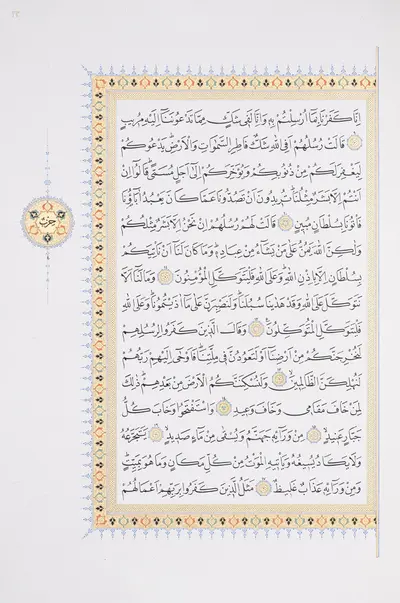 اِنَّا كَفَرْنَا بِمَٓا اُرْسِلْتُمْ بِه۪ وَاِنَّا لَف۪ي شَكٍّ مِمَّا تَدْعُونَنَٓا اِلَيْهِ مُر۪يبٍ
قَالَتْ رُسُلُهُمْ اَفِي اللّٰهِ شَكٌّ فَاطِرِ السَّمٰوَاتِ وَالْاَرْضِۜ يَدْعُوكُمْ
لِيَغْفِرَ لَكُمْ مِنْ ذُنُوبِكُمْ وَيُؤَخِّرَكُمْ اِلٰٓى اَجَلٍ مُسَمًّىۜ قَالُٓوا اِنْ
اَنْتُمْ اِلَّا بَشَرٌ مِثْلُنَاۜ تُر۪يدُونَ اَنْ تَصُدُّونَا عَمَّا كَانَ يَعْبُدُ اٰبَٓاؤُ۬نَا
فَأْتُونَا بِسُلْطَانٍ مُب۪ينٍ قَالَتْ لَهُمْ رُسُلُهُمْ اِنْ نَحْنُ اِلَّا بَشَرٌ مِثْلُكُمْ
وَلٰكِنَّ اللّٰهَ يَمُنُّ عَلٰى مَنْ يَشَٓاءُ مِنْ عِبَادِه۪ۜ وَمَا كَانَ لَنَٓا اَنْ نَأْتِيَكُمْ
بِسُلْطَانٍ اِلَّا بِاِذْنِ اللّٰهِۜ وَعَلَى اللّٰهِ فَلْيَتَوَكَّلِ الْمُؤْمِنُونَ وَمَا لَنَٓا اَلَّا
نَتَوَكَّلَ عَلَى اللّٰهِ وَقَدْ هَدٰينَا سُبُلَنَاۜ وَلَنَصْبِرَنَّ عَلٰى مَٓا اٰذَيْتُمُونَاۜ وَعَلَى اللّٰهِ
فَلْيَتَوَكَّلِ الْمُتَوَكِّلُونَ وَقَالَ الَّذ۪ينَ كَفَرُوا لِرُسُلِهِمْ
لَنُخْرِجَنَّكُمْ مِنْ اَرْضِنَٓا اَوْ لَتَعُودُنَّ ف۪ي مِلَّتِنَاۜ فَاَوْحٰٓى اِلَيْهِمْ رَبُّهُمْ
لَنُهْلِكَنَّ الظَّالِم۪ينَ وَلَنُسْكِنَنَّكُمُ الْاَرْضَ مِنْ بَعْدِهِمْۜ ذٰلِكَ
لِمَنْ خَافَ مَقَام۪ي وَخَافَ وَع۪يدِ وَاسْتَفْتَحُوا وَخَابَ كُلُّ
جَبَّارٍ عَن۪يدٍ مِنْ وَرَٓائِه۪ جَهَنَّمُ وَيُسْقٰى مِنْ مَٓاءٍ صَد۪يدٍ يَتَجَرَّعُهُ
وَلَا يَكَادُ يُس۪يغُهُ وَيَأْت۪يهِ الْمَوْتُ مِنْ كُلِّ مَكَانٍ وَمَا هُوَ بِمَيِّتٍۜ
وَمِنْ وَرَٓائِه۪ عَذَابٌ غَل۪يظٌ مَثَلُ الَّذ۪ينَ كَفَرُوا بِرَبِّهِمْ اَعْمَالُهُمْ
حزب